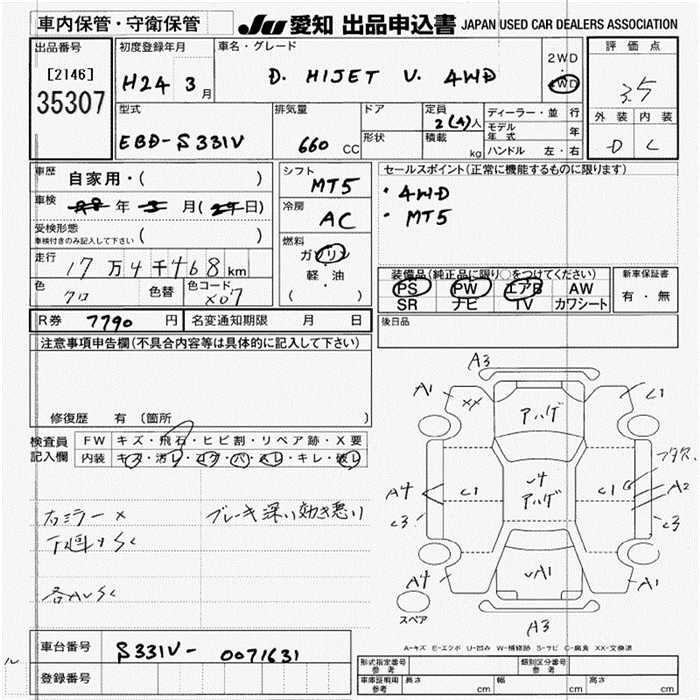 車内保管・守衛保管
JU 愛知 出品申込書 JAPAN USED CAR DEALERS ASSOCIATION
出品番号
[2146]
35307
初度登録年月
H24 3月
車名・グレード
D. HIJET V. 4WD
2WD
4WD
評価点
3.5
外装 内装
D C
型式
EBD-S331V
排気量
660 CC
ドア
形状
定員
2(4)人
積載
kg
ディーラー・並行
モデル年式 年
ハンドル 左・右
車歴
自家用・( )
車検
年 月( 日)
受検形態
車検付きのみ記入して下さい ( )
走行
17万4千468km
色
クロ
色替
色コード
X07
シフト
MT5
冷房
AC
燃料
ガソリン
軽・油
( )
セールスポイント(正常に機能するものに限ります)
・4WD
・MT5
装備品(純正品に限り○をつけてください)
PS PW エアB AW
SR ナビ TV カワシート
新車保証書
有・無
後日品
R券 7790円
名変通知期限 月 日
注意事項申告欄(不具合内容等は具体的に記入して下さい)
修復歴 有(箇所 )
検査員記入欄
FW キズ・飛石・ヒビ割・リペア跡・X要
内装 キズ・汚レ・コゲ・穴・スレ・キレ・破レ
右ミラー X
ブレーキ深い効き悪い
下廻り SC
各AU SC
A3
A1
XX
アハゲ
C1
フタス
A4
C1
C1
A2
C3
C3
A4
A1
A1
A3
スペア
A-キズ E-エクボ U-凹み W-補修跡 S-サビ C-腐食 XX-交換済
車台番号
S331V-0071631
登録番号
ル
形式指定番号
参考
類別区分番号
参考
車庫証明用
参考
長さ cm
幅 cm
高さ cm